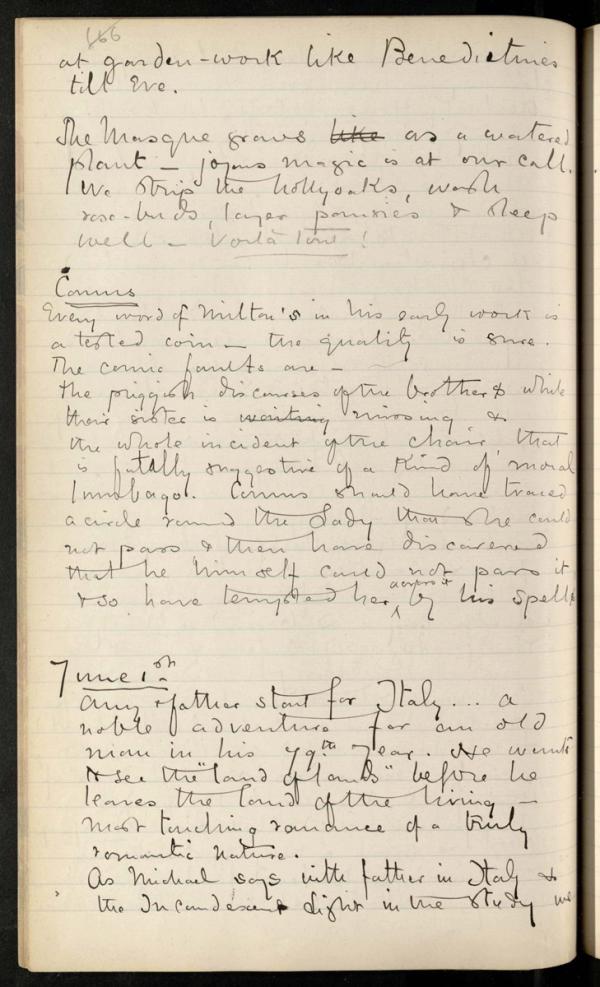 166
at garden-work like Benedictines
till Eve.
The Masque grows like as a watered
plant — joyous magic is at our call.
We strip the hollyoaks, wash
rose-buds, layer pansies & sleep
well — Voilà tout!
Comus
Every word of Milton's in his early work is
a tested coin — the quality is sure.
The comic faults are —
the priggish discourses of the brothers while
their sister is waiting missing &
the whole incident of the chair, that
is fatally suggestive of a kind of moral
lumbago. Comus should have traced
a circle round the Lady that she could
not pass & then have discovered
that he himself could not pass it
& so have tempted her across it by his spells
June 1st
Amy & father start for Italy... a
noble adventure for an old
man in his 79th year. He wants
to see the "land of lands" before he
leaves the land of the living —
most touching romance of a truly
romantic nature.
As Michael says with father in Italy &
the Incandescent Light in the study we